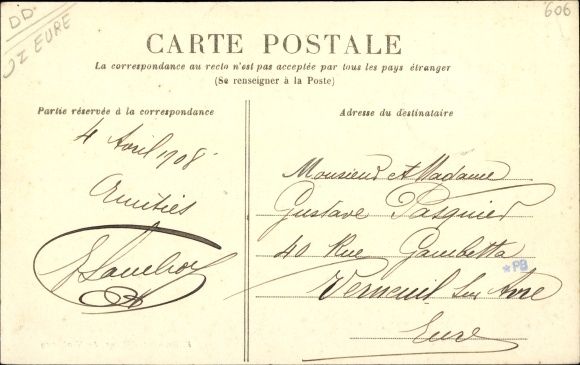 DD
27 EURE
606
CARTE POSTALE
La correspondance au recto n'est pas acceptée par tous les pays étranger
(Se renseigner à la Poste)
Partie réservée à la correspondance
4 Avril 1908
Amitiés
Adresse du destinataire
Monsieur et Madame
Gustave Pasquier
40 Rue Gambetta
*PB
Verneuil sur Avre
Eure